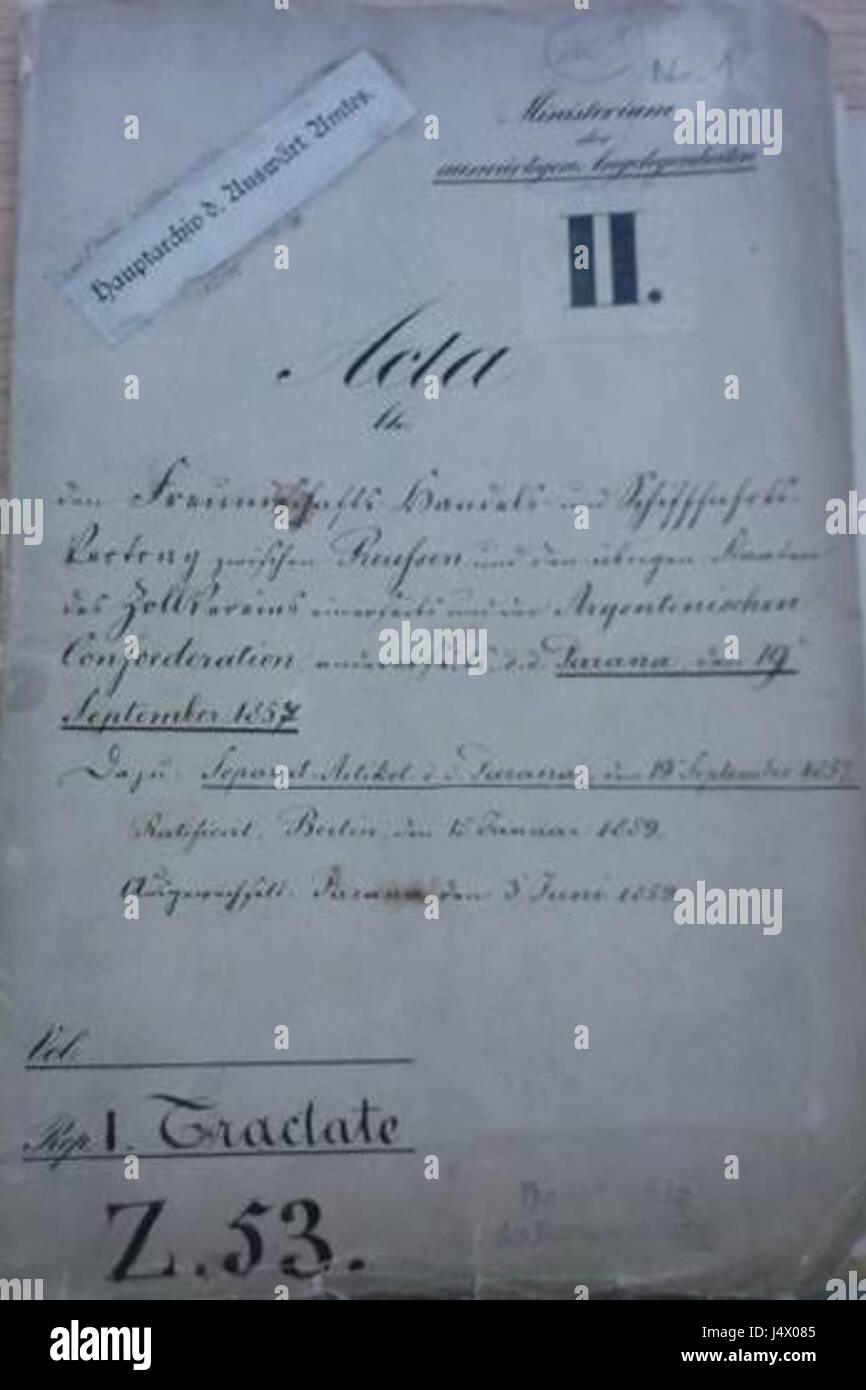 Nr. 1
Ministerium
der
auswärtigen Angelegenheiten
Hauptarchiv d. Auswärt. Amtes.
II.
Acta
btr.
den Freundschafts Handels- und Schifffahrts-
Vertrag zwischen Preußen und den übrigen Staaten
des Zollvereins einerseits und der Argentinischen
Confoederation andererseits d.d. Parana, den 19
September 1857
Dazu: Separat-Artikel d.d. Parana, den 19 September 1857.
Ratificirt, Berlin, den Januar 1859.
Ausgewechselt. Parana den 3 Juni 1859
Vol.
Rep. I. Tractate
Z.53.
alamy
alamy
alamy
alamy
a
a
alamy
Image ID: J4X085
www.alamy.com